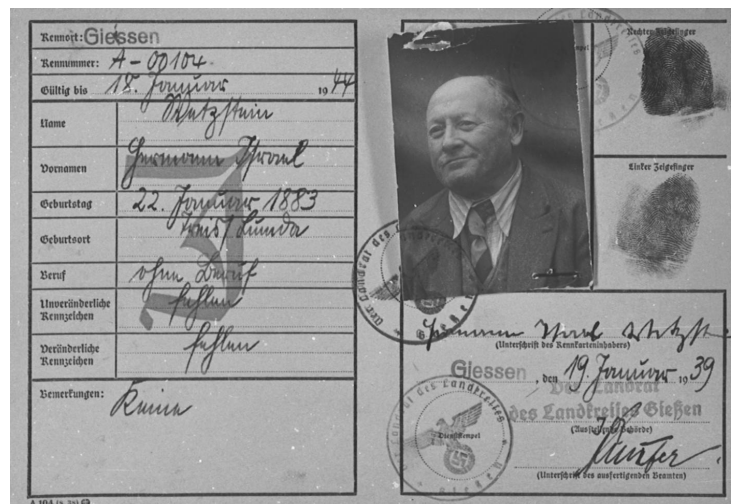 Kennort: Giessen
Kennummer: A-00104
Gültig bis 18. Januar 1944
Name Wetzstein
Vornamen Hermann Israel
Geburtstag 22. Januar 1883
Geburtsort Treis/Lumda
Beruf ohne Beruf
Unveränderliche Kennzeichen fehlen
Veränderliche Kennzeichen fehlen
Bemerkungen: Keine
J
Rechter Zeigefinger
Linker Zeigefinger
Der Landrat des Landkreises
Hermann Israel Wetzst
(Unterschrift des Kennkarteninhabers)
Giessen, den 19. Januar 1939
Der Landrat
des Landkreises Gießen
(Ausstellende Behörde)
Dienststempel
(Unterschrift des ausfertigenden Beamten)